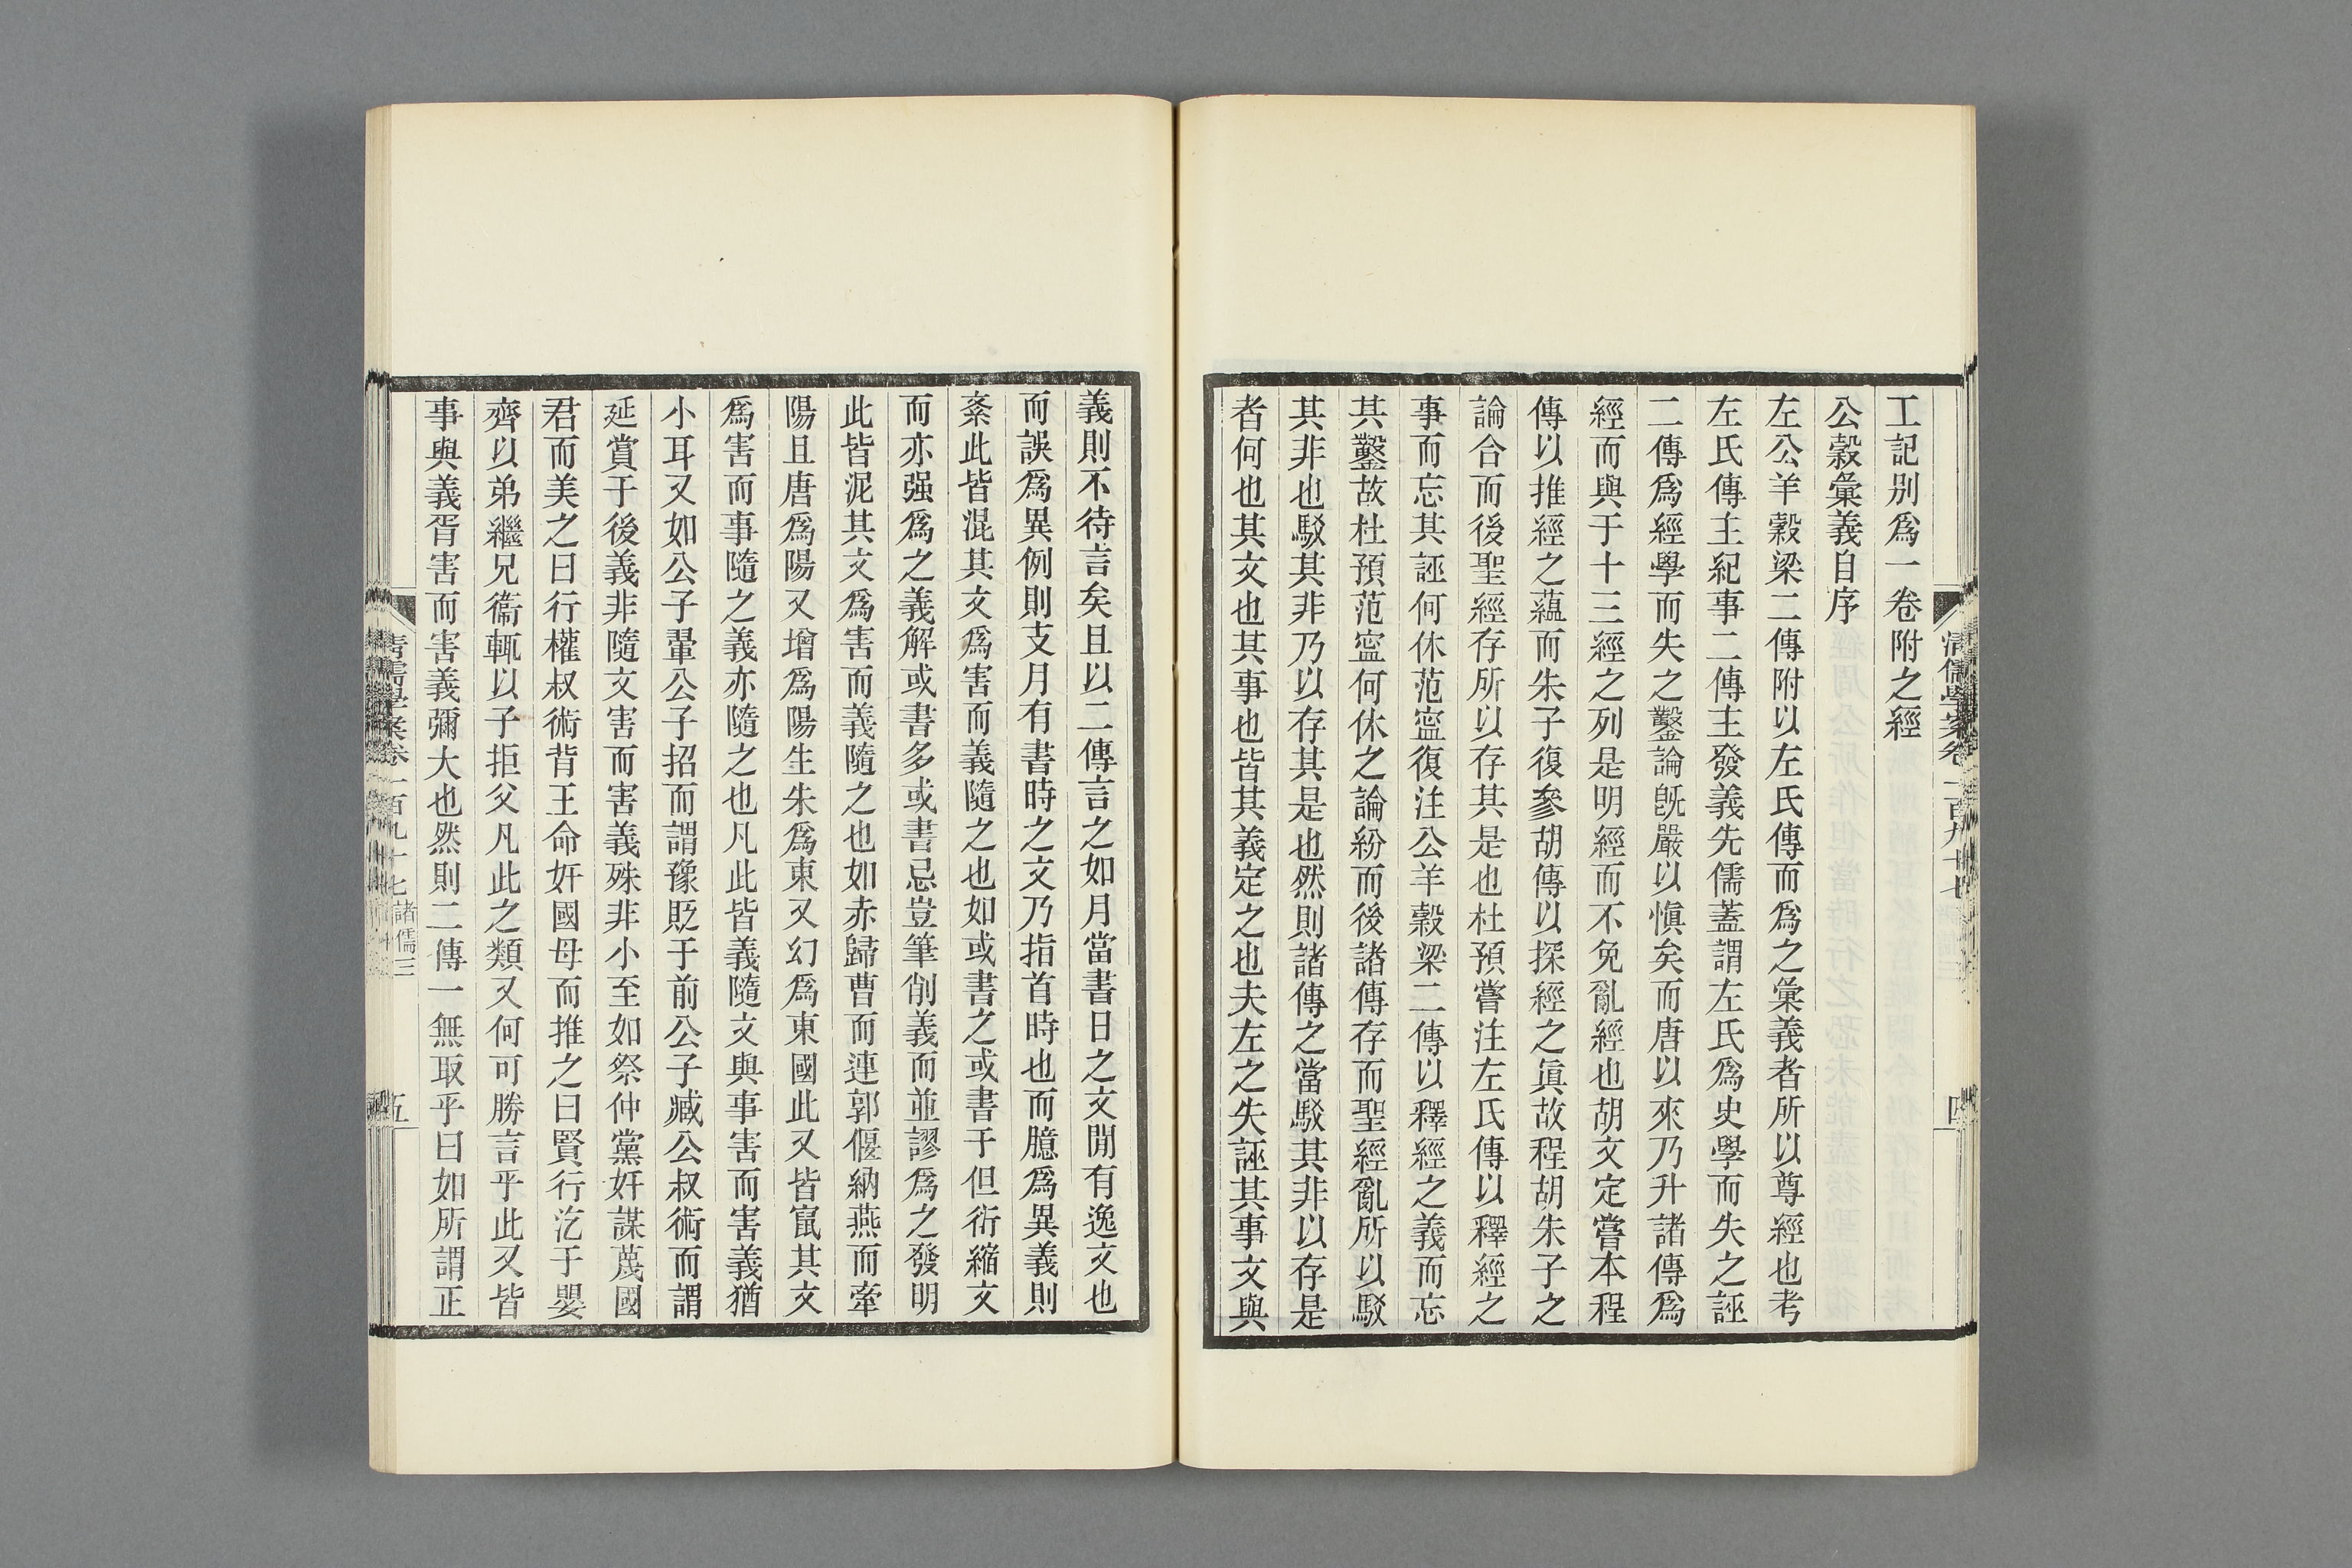 工記別爲一卷附之經
公穀彙義自序
左公羊穀梁二傳附以左氏傳而爲之彙義者所以尊經也考
左氏傳主紀事二傳主發義先儒蓋謂左氏爲史學而失之誣
二傳爲經學而失之鑿論旣嚴以愼矣而唐以來乃升諸傳爲
經而與于十三經之列是明經而不免亂經也胡文定嘗本程
傳以推經之蘊而朱子復參胡傳以探經之眞故程胡朱子之
論合而後聖經存所以存其是也杜預嘗注左氏傳以釋經之
事而忘其誣何休范寗復注公羊穀梁二傳以釋經之義而忘
其鑿故杜預范寗何休之論紛而後諸傳存而聖經亂所以駁
其非也駁其非乃以存其是也然則諸傳之當駁其非以存是
者何也其文也其事也皆其義定之也夫左之失誣其事文與
清儒學案卷一百九十七
四
義則不待言矣且以二傳言之如月當書日之文閒有逸文也
而誤爲異例則支月有書時之文乃指首時也而臆爲異義則
紊此皆混其文爲害而義隨之也如或書之或書于但衍縮文
而亦强爲之義解或書多或書忌豈筆削義而並謬爲之發明
此皆泥其文爲害而義隨之也如赤歸曹而連郭偃納燕而牽
陽且唐爲陽又增爲陽生朱爲東又幻爲東國此又皆竄其文
爲害而事隨之義亦隨之也凡此皆義隨文與事害而害義猶
小耳又如公子翬公子招而謂豫貶于前公子臧公叔術而謂
延賞于後義非隨文害而害義殊非小至如祭仲黨奸謀蔑國
君而美之曰行權叔術背王命奸國母而推之曰賢行汔于嬰
齊以弟繼兄衞輒以子拒父凡此之類又何可勝言乎此又皆
事與義胥害而害義彌大也然則二傳一無取乎曰如所謂正
清儒學案卷一百九十七 諸儒三
五